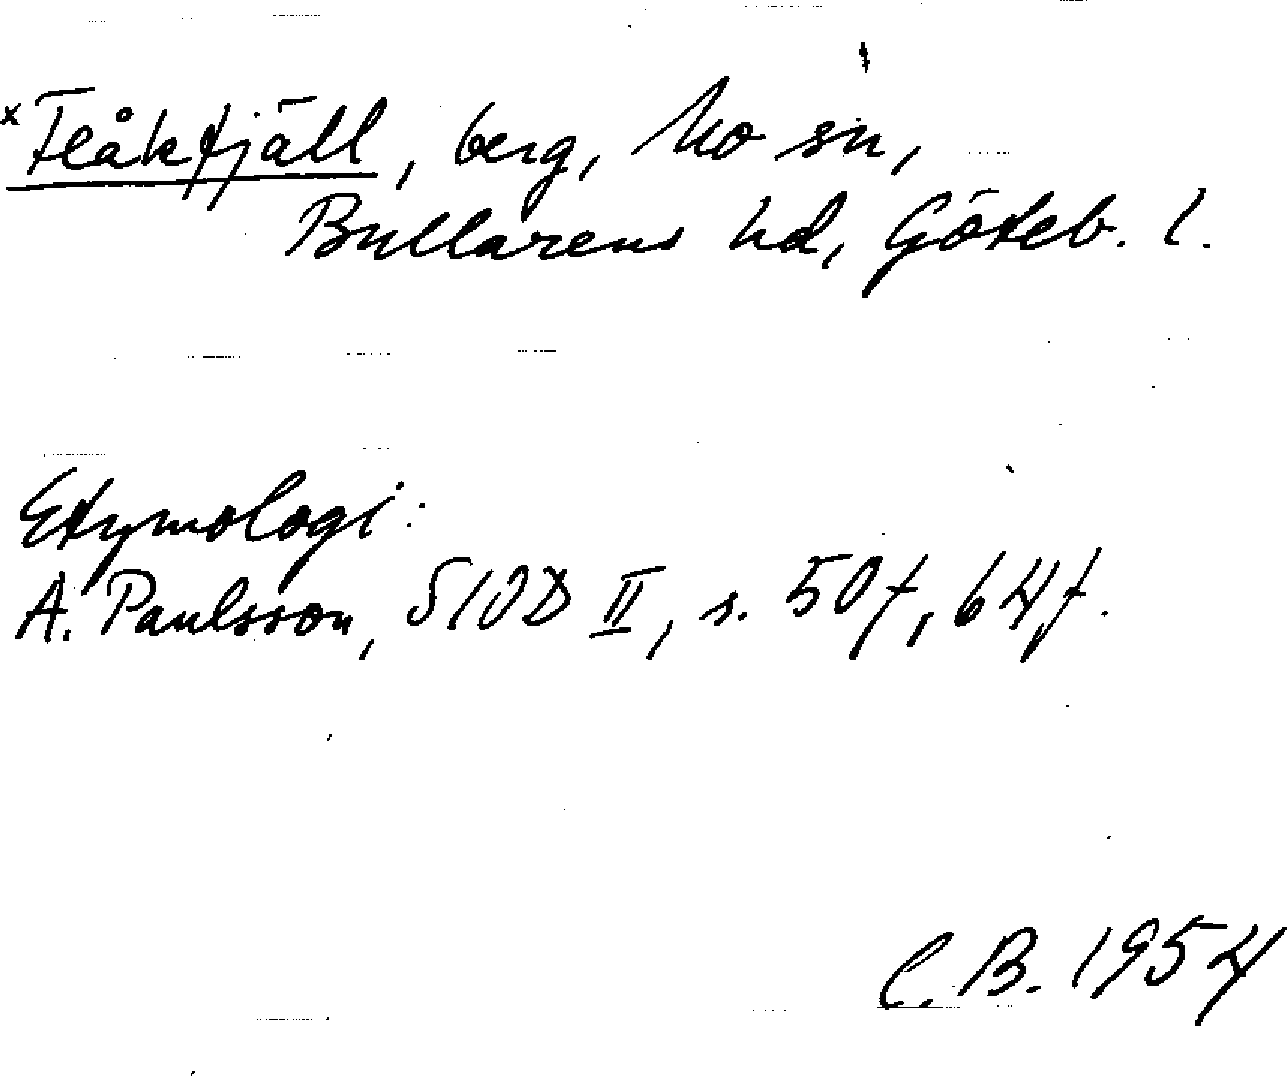 x Flåkfjäll, berg, Mo sn,
Bullarens hd, Göteb. l.
Etymologi:
A. Paulsson, SIOD II, s. 50f, 64f.
C. B. 1954